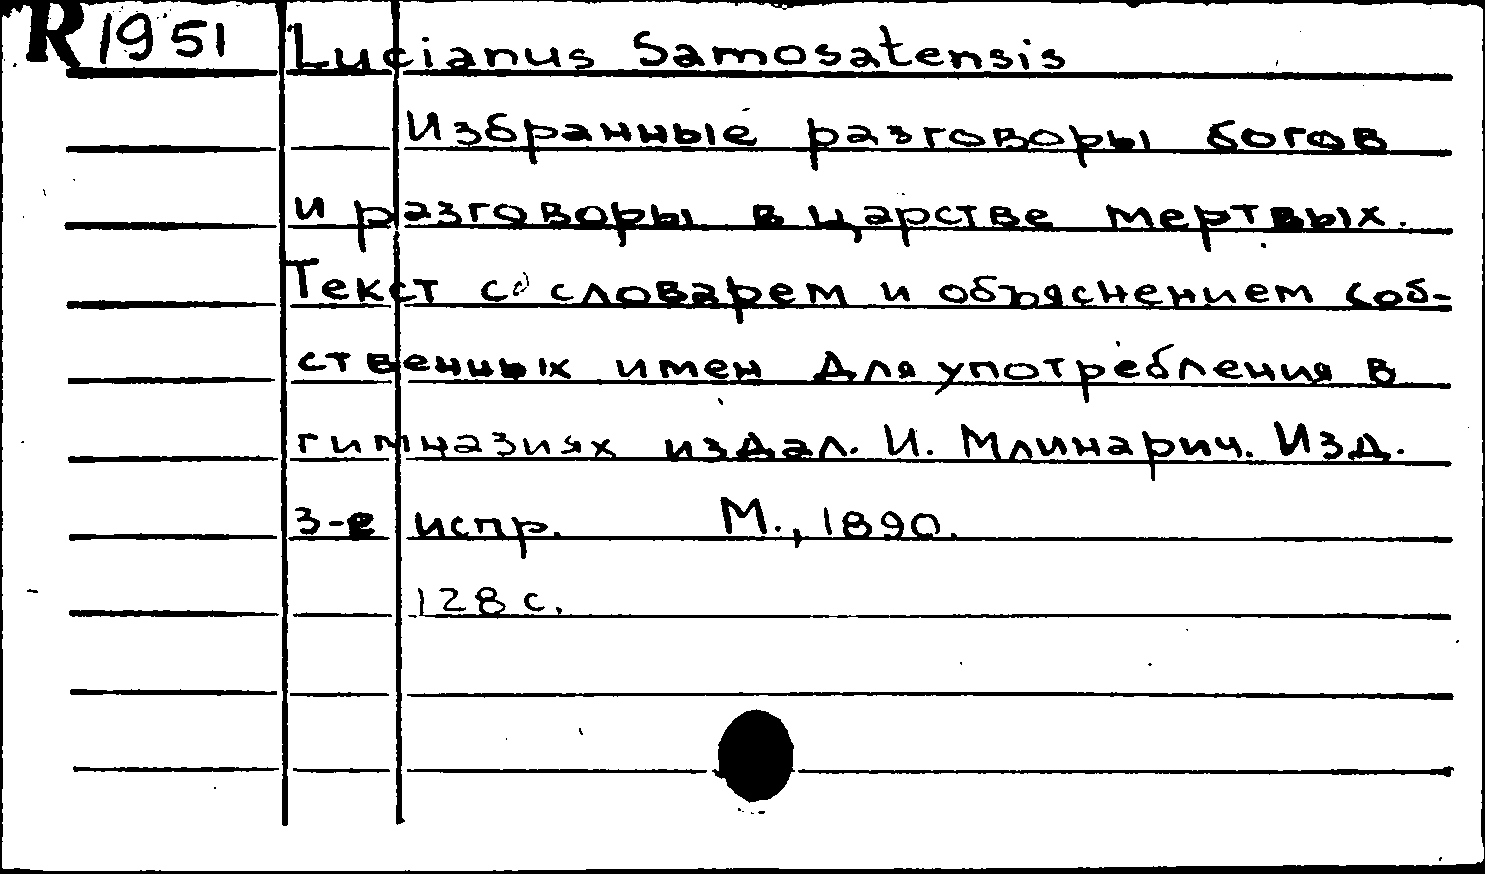 R 1951 Lucianus Samosatensis
Избранные разговоры богов
и разговоры в царстве мертвых.
Текст со словарем и объяснением соб-
ственных имен для употребления в
гимназиях издал. И. Млинарич. Изд.
3-е испр. М., 1890.
128 с.